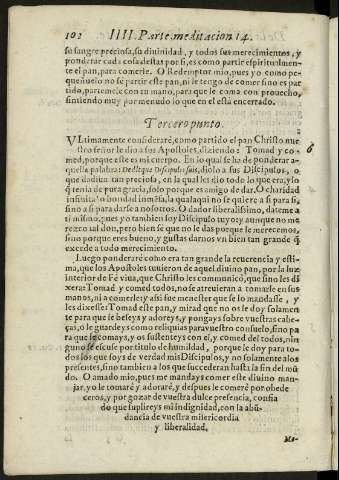 102 IIII. Parte. meditacion 14.
su sangre preciosa, su diuinidad, y todos sus merecimientos, y
ponderar cada cosa destas por si, es como partir espiritualmen-
te el pan, para comerle. O Redemptor mio, pues yo como pe-
queñuelo no sè partir este pan, ni le tengo de comer sino es par
tido, parteme le con tu mano, para que le coma con prouecho,
sintiendo muy por menudo lo que en el està encerrado.
Tercero punto.
VLtimamente considerarè, como partido el pan Christo nue
stro señor le dio a sus Apostoles, diziendo: Tomad y co-
med, porque este es mi cuerpo. En lo qual se ha de ponderar a-
quella palabra: Deditque Discipulis suis, diolo a sus Discipulos, o
que dadiua tan preciosa, en la qual les dio todo lo que era, y lo
q̃ tenia de pura gracia, solo porque es amigo de dar. O charidad
infinita! o bondad inmẽsa, la qual aqui no se quiere a si para si,
sino a si para darse a nosotros. O dador liberalissimo, dateme a
ti mismo, pues yo tambien soy Discipulo tuyo: y aunque no me
rezco tal don, pero bien sè que no le das porque le merecemos,
sino porque eres bueno, y gustas darnos vn bien tan grande q̃
excede a todo merecimiento.
Luego ponderarè como era tan grande la reuerencia y esti-
ma, que los Apostoles tuuieron de aquel diuino pan, por la luz
interior de Fè viua, que Christo les comunicò, que sino les di
xera: Tomad y comed todos, no se atreuieran a tomarle en sus
manos, ni a comerle: y assi fue menester que se lo mandasse, y
les dixesse: Tomad este pan, y mirad que no os le doy solamen
te para que le beseys y adoreys, y pongays sobre vuestras cabe-
ças, o le guardeys como reliquias para vuestro consuelo, sino pa
ra que le comays, y os sustenteys con el, y comed del todos, nin
guno se escuse por titulo de humildad, porque le doy para to-
dos los que soys de verdad mis Discipulos, y no solamente a los
presentes, sino tambien a los que sucederan hasta la fin del mũ
do. O amado mio, pues me mandays comer este diuino man-
jar, yo le tomarè y adorarè, y despues le comerè por obede
ceros, y por gozar de vuestra dulce presencia, confia
do que suplireys mi indignidad, con la abũ-
dancia de vuestra misericordia
y liberalidad.
Me-